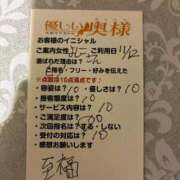 優しい奥様
お客様のイニシャル
ご案内女性 ご利用日 11/12
選ばれた理由は?
ご指名・フリー・好みを伝えた
※点数は10点満点です!
・容姿は? 10 ・性格は? 10
・接客態度は? 10
・サービス内容は? 10
・ご満足度は? 00
次回指名する・しない
・受付の対応は? 10
感想お願いします
至福